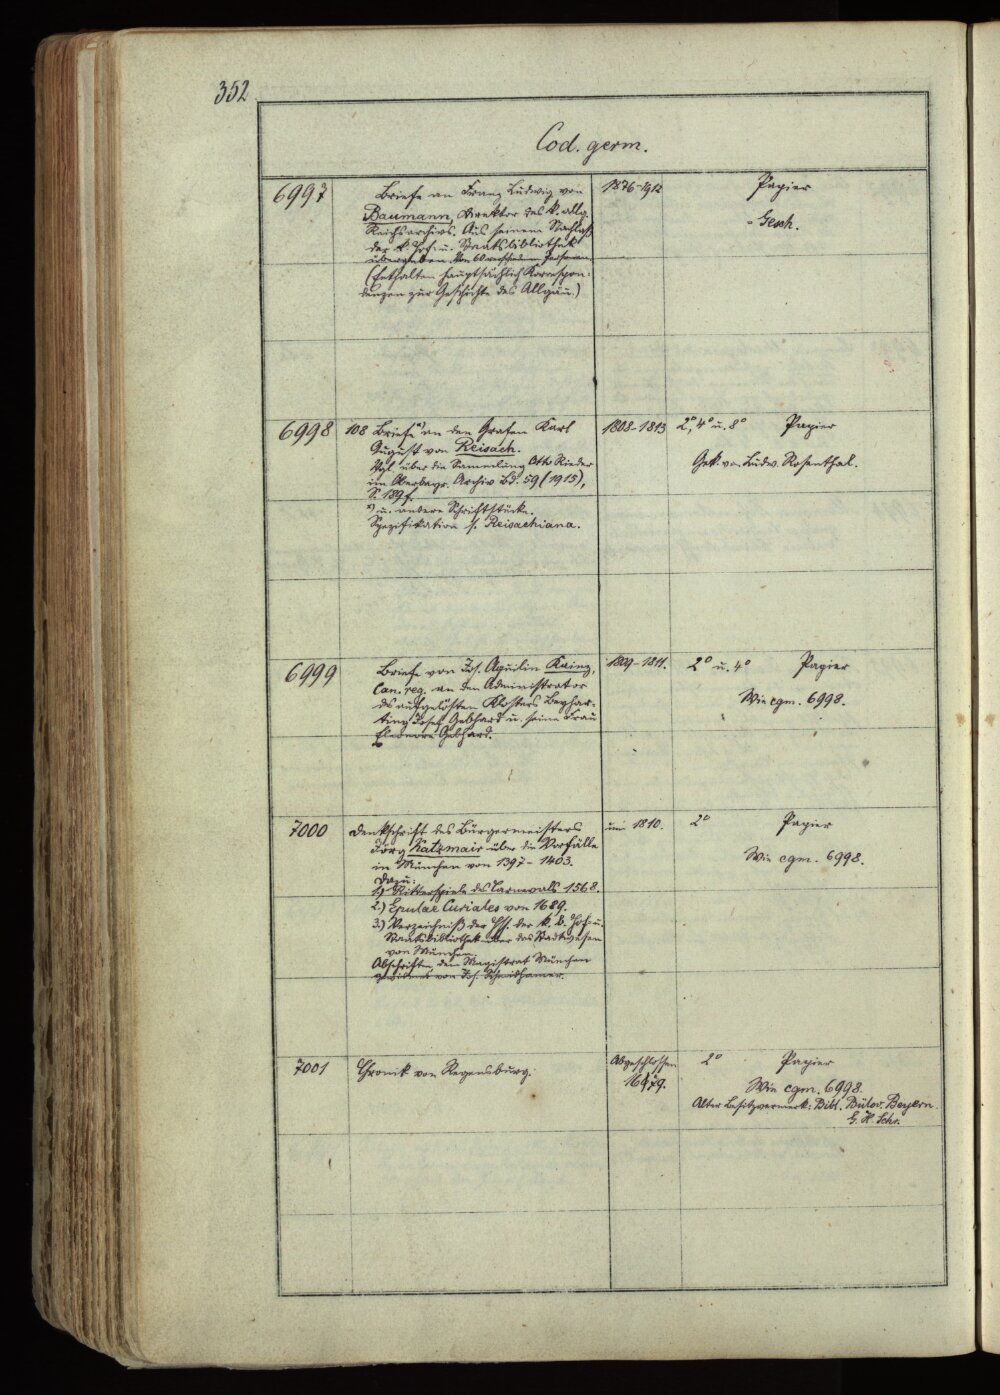 352
Cod. germ.
6997
Briefe an Franz Ludwig von
Baumann, Direktor des k. allg.
Reichsarchivs. Aus seinem Nachlaß
der k. Hof- u. Staatsbibliothek
übergeben. Von 60 verschiedenen Personen.
(Enthalten hauptsächlich Korrespon-
denzen zur Geschichte des Allgäu.)
1876-1912
Papier
= Gesch.
6998
108 Briefe *) an den Grafen Karl
August von Reisach.
Vgl. über die Sammlung Otto Rieder
im Oberbayr. Archiv Bd. 59 (1915),
S. 189 f.
*) u. andere Schriftstücke.
Spezifikation s. Reisachiana.
1808-1813
2°, 4° u. 8° Papier
Gek. von Ludw. Rosenthal.
6999
Briefe von Jos. Aquilin Kainz,
Can. reg. an den Administrator
des aufgelösten Klosters Beyhar-
ting Josef Gebhard u. seine Frau
Eleonore Gebhard.
1809-1811.
2° u. 4° Papier
Wie cgm. 6998.
7000
Denkschrift des Bürgermeisters
Jörg Katzmair über die Vorfälle
in München von 1397-1403.
Dazu:
1.) Ritterspiele des Carnevals 1568.
2.) Epulae Curiales von 1689.
3.) Verzeichniß der Hss. der k. b. Hof- u.
Staatsbibliothek über das Stadtwesen
von München.
Abschriften, dem Magistrat München
gewidmet von Jos.
um 1810.
2° Papier
Wie cgm. 6998.
7001
Chronik von Regensburg.
Abgeschlossen
2° Papier
Wie cgm. 6998.
Alter Besitzvermerk: Bibl. Bülov. Beyern.
G. H. Schr.